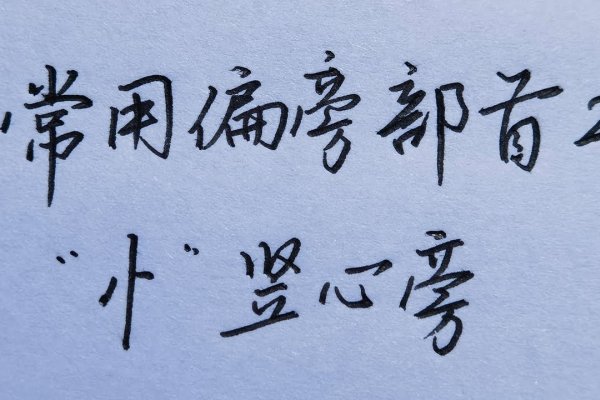 常用偏旁部首
“忄”竖心旁